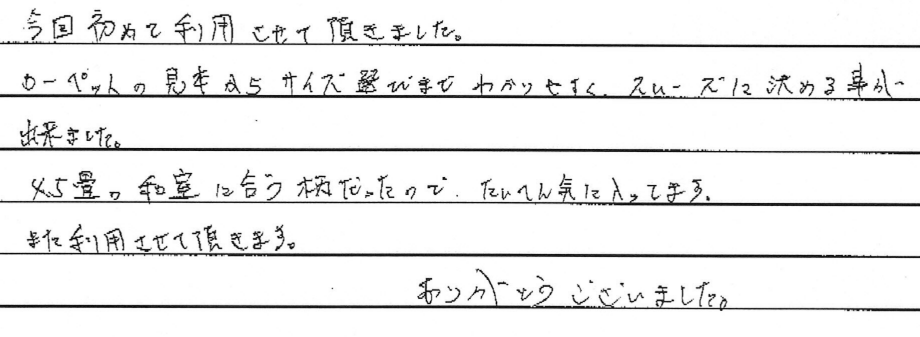 今回初めて利用させて頂きました。
カーペットの見本からサイズ選びまでわかりやすく、スムーズに決める事が
出来ました。
4.5畳の和室に合う柄だったので、たいへん気に入ってます。
また利用させて頂きます。
ありがとうございました。